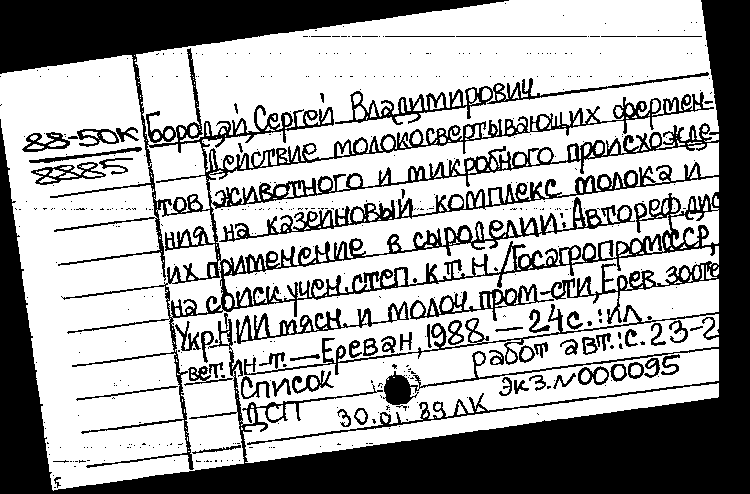 88-50К
8885
Бородай, Сергей Владимирович.
Действие молокосвертывающих фермен-
тов животного и микробного происхожде-
ния на казеиновый комплекс молока и
их применение в сыроделии: Автореф. дис
на соиск. учен. степ. к.т.н. / Госагропром СССР,
Укр.НИИ мясн. и молоч. пром-сти, Ерев. зооте
-вет. ин-т. — Ереван, 1988. — 24 с. : ил.
Список работ авт.: с. 23-2
ДСП 30.01.89 ЛК Экз. N000095